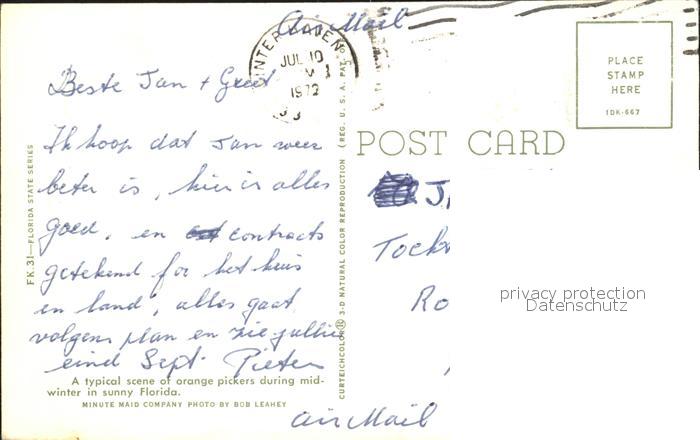 Air Mail
WINTER HAVEN
JUL 10
1972
PLACE
STAMP
HERE
IDK-667
Beste Jan + Greet
POST CARD
Ik hoop dat Jan weer
beter is, hier is alles
goed, en contracts
getekend for het huis
en land, alles gaat
volgens plan en zie jullie
eind Sept Pieter
FK.31—FLORIDA STATE SERIES
A typical scene of orange pickers during mid-
winter in sunny Florida.
MINUTE MAID COMPANY PHOTO BY BOB LEAHEY
CURTEICHCOLOR® 3-D NATURAL COLOR REPRODUCTION (REG. U.S.A. PAT.
J
Tock
Ro
privacy protection
Datenschutz
Air Mail